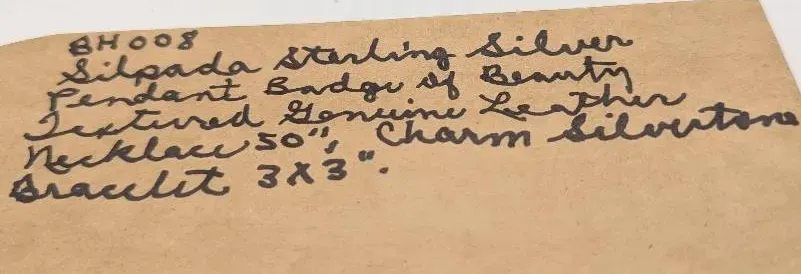 BH008
Silpada Sterling Silver
Pendant Badge of Beauty
Textured Genuine Leather
Necklace 50", Charm Silvertone
Bracelet 3X3".